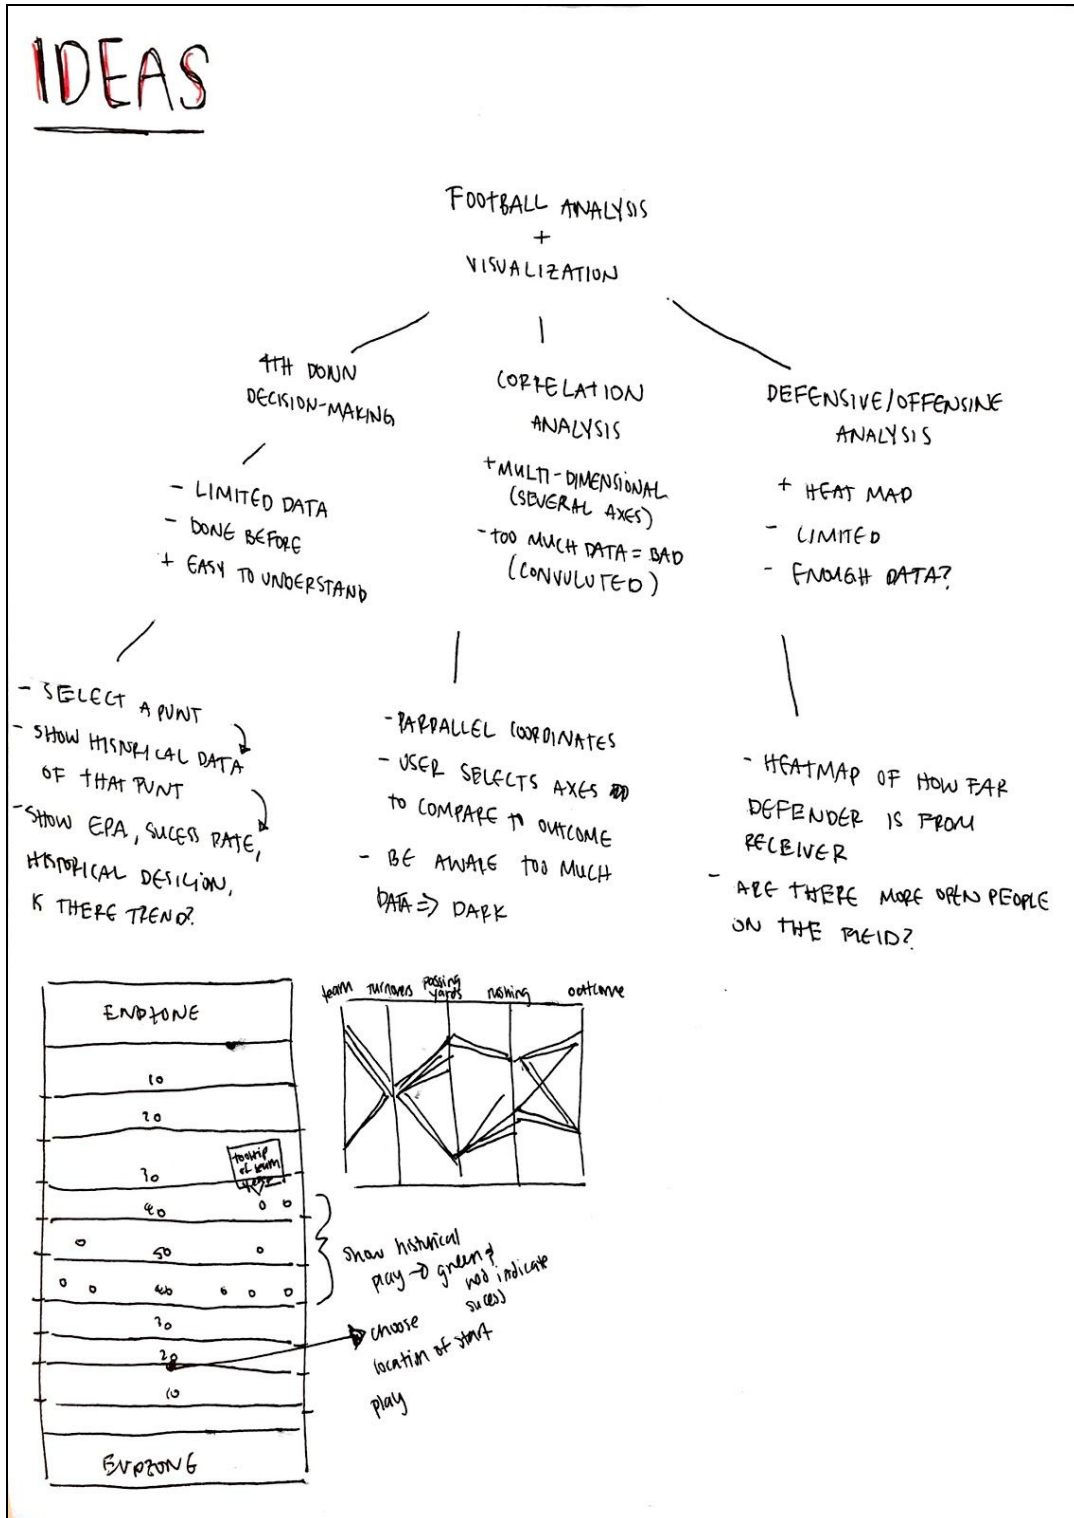 IDEAS
FOOTBALL ANALYSIS
+
VISUALIZATION
4TH DOWN
DECISION-MAKING
- LIMITED DATA
- DONE BEFORE
+ EASY TO UNDERSTAND
- SELECT A PUNT
- SHOW HISTORICAL DATA
OF THAT PUNT
- SHOW EPA, SUCESS RATE,
HISTORICAL DESICION,
IS THERE TREND?
CORRELATION
ANALYSIS
+ MULTI-DIMENSIONAL
(SEVERAL AXES)
- TOO MUCH DATA = BAD
(CONVULUTED)
- PARRALLEL COORDINATES
- USER SELECTS AXES
TO COMPARE TO OUTCOME
- BE AWARE TOO MUCH
DATA => DARK
DEFENSIVE/OFFENSINE
ANALYSIS
+ HEAT MAP
- LIMITED
- ENOUGH DATA?
- HEATMAP OF HOW FAR
DEFENDER IS FROM
RECEIVER
- ARE THERE MORE OPEN PEOPLE
ON THE FIELD?
ENDZONE
10
20
30
tooltip
of team
40
50
40
30
20
10
ENDZONE
team turnovers passing yards rushing outcome
show historical
play → green &
red indicate
sucess
choose
location of start
play